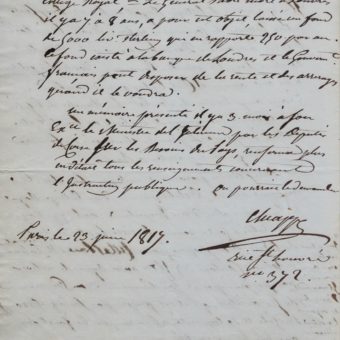 Collège Royal. Le Général Paoli mort à Londres
il y a 7 à 8 ans, a pour cet objet, laissé un fond
de 5000 liv. sterling qui en rapporte 250 par an
le fond existe à la banque de Londres et le Gouvt
français peut disposer de la rente et des arrérages
quand il le voudra.
un mémoire présenté il y a 3 mois à son
Exce le Ministre de l'Intérieur par les Députés
de Corse sur les Besoins du Pays renferme plus
en détail tous les renseignements concernant
l'Instruction publique. on pourrait le demander
Paris le 23 juin 1817.
rue St honoré
no 372.